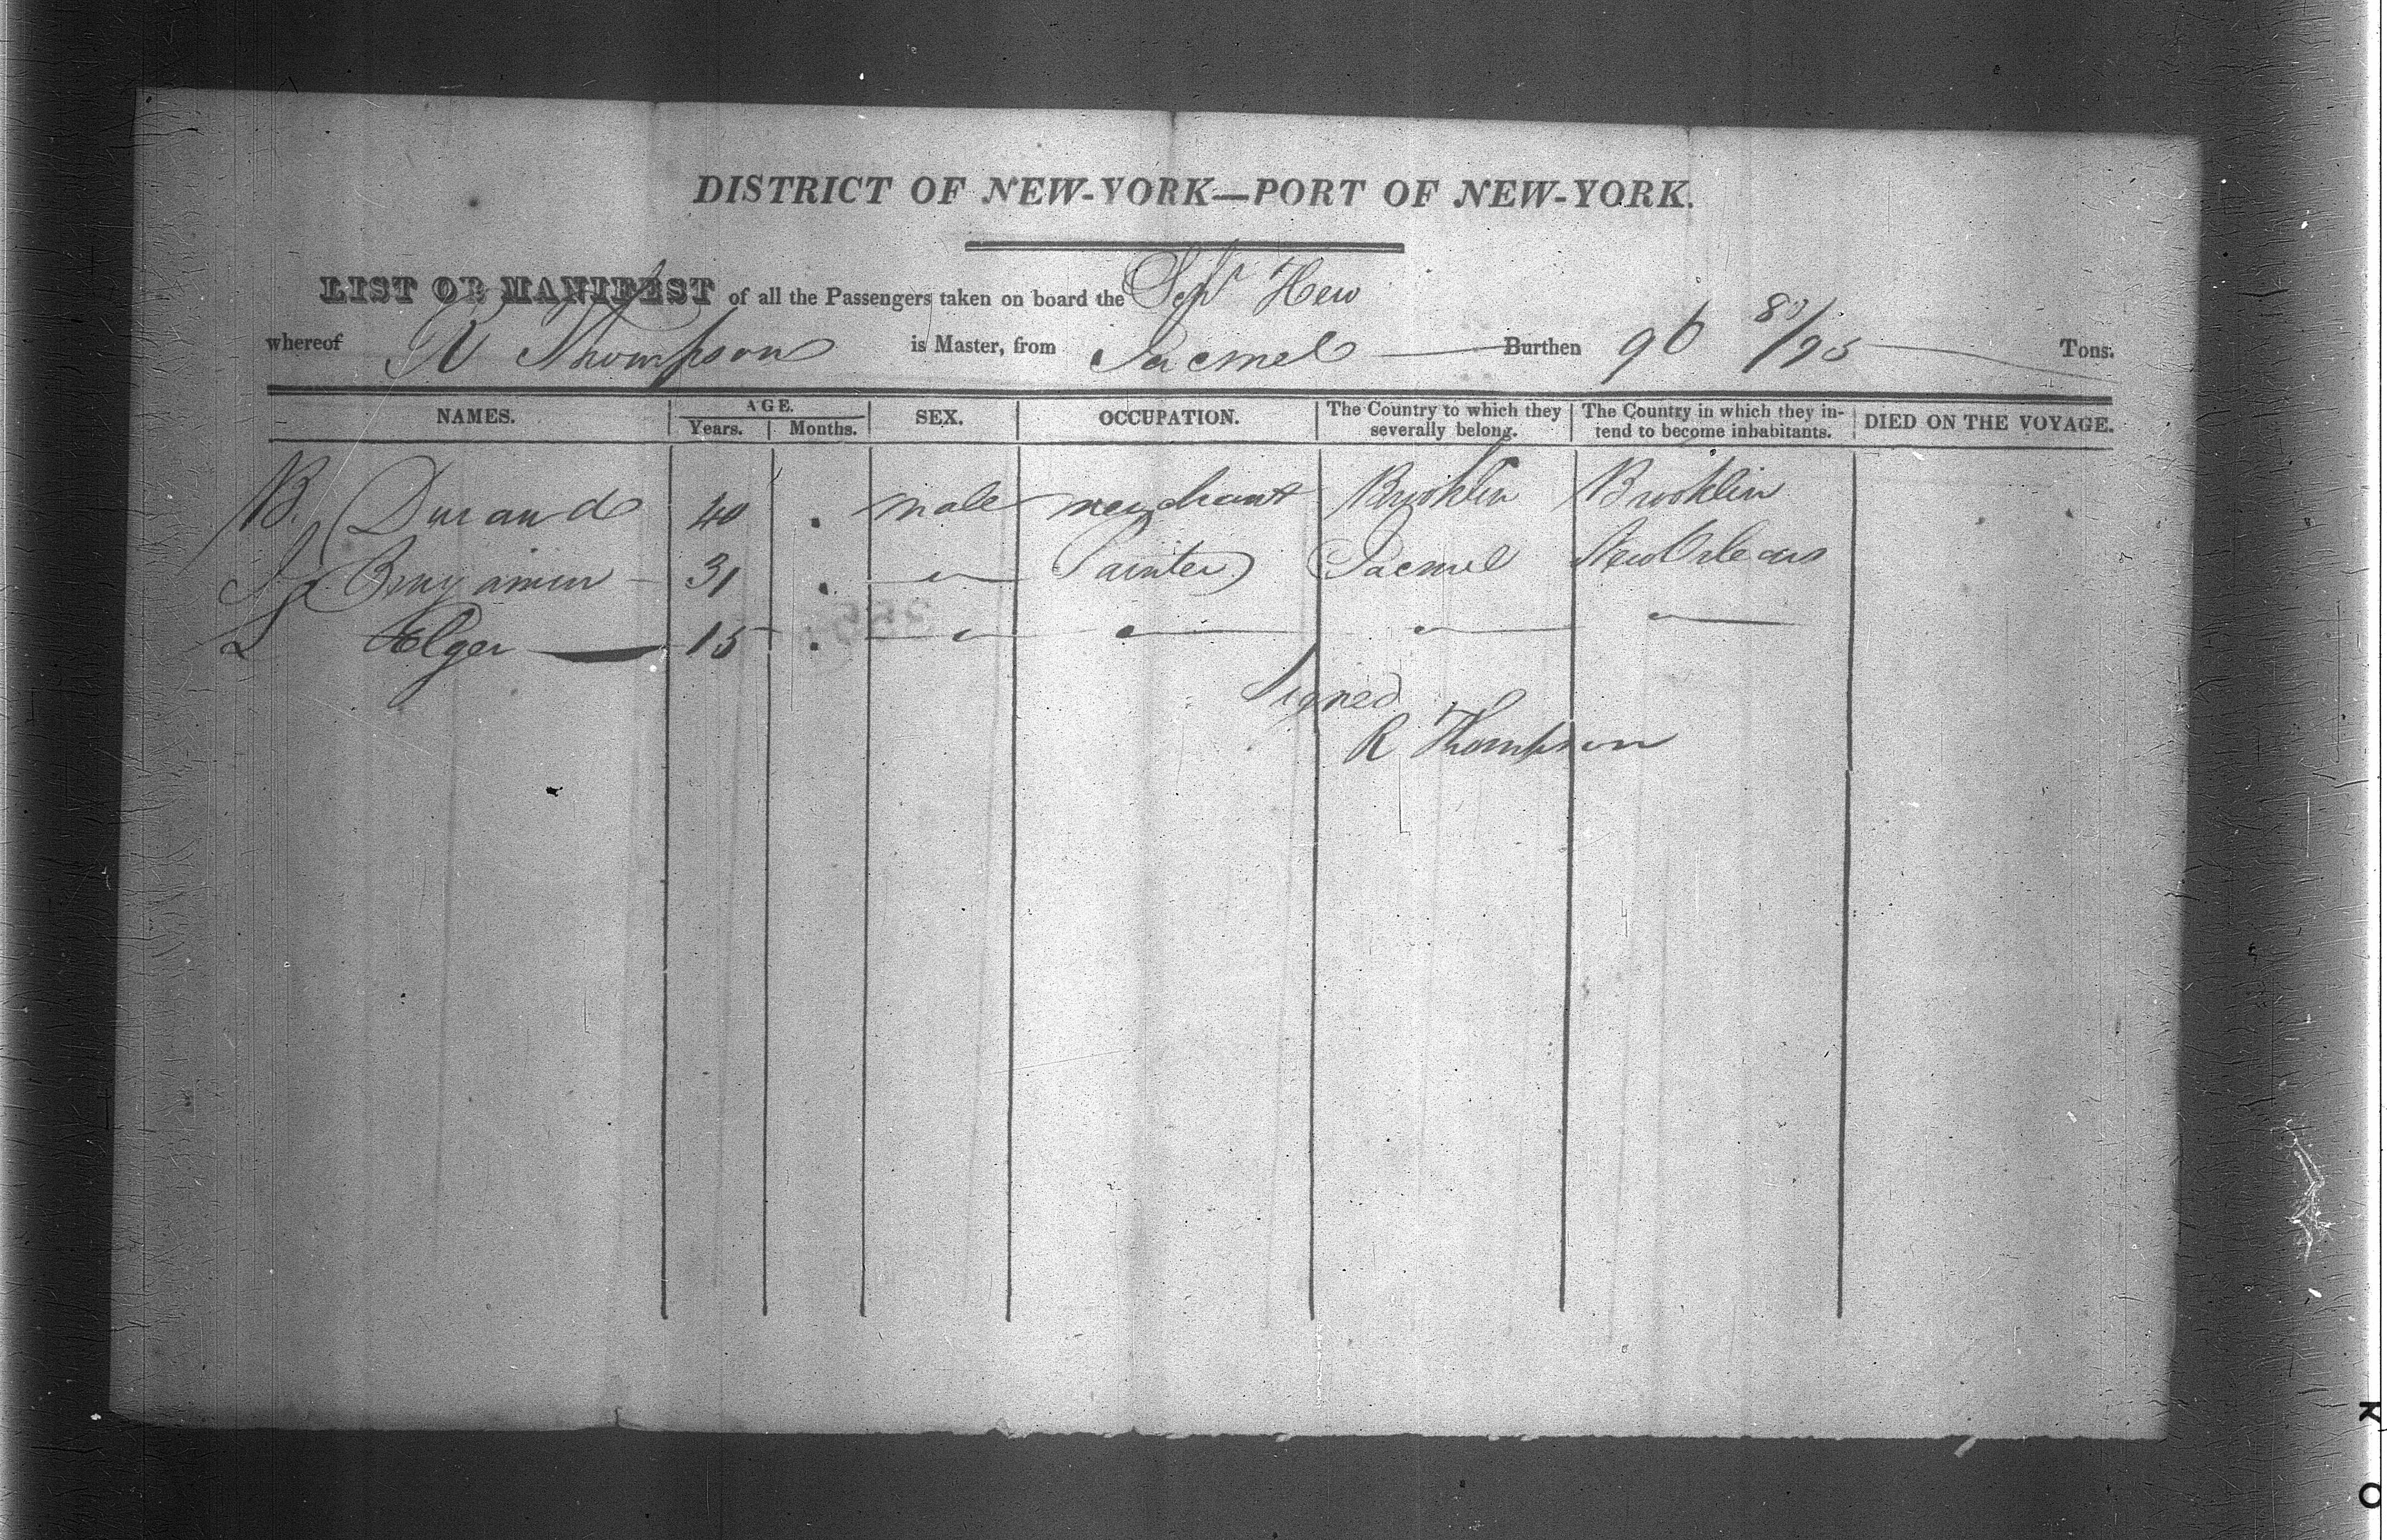 DISTRICT OF NEW-YORK—PORT OF NEW-YORK.
LIST OR MANIFEST of all the Passengers taken on board the Hew
whereof R Thompson is Master, from Jacmel Burthen 96 80/95 Tons.
NAMES. AGE. SEX. OCCUPATION. The Country to which they severally belong. The Country in which they intend to become inhabitants. DIED ON THE VOYAGE.
Years. Months.
B. Durand 40 male merchant Brooklin Brooklin
Benjamin 31 Painter Jacmel New Orleans
L Alger 15
Signed
R Thompson